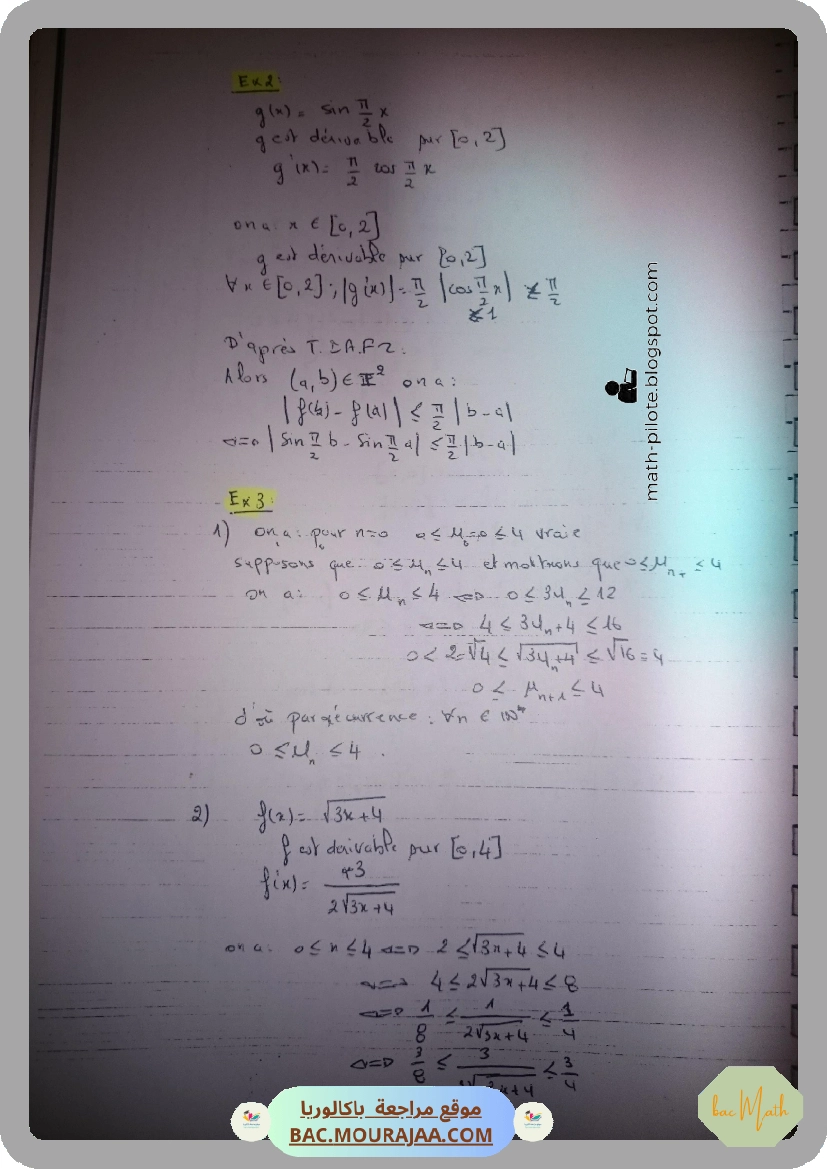 Ex 2:
g(x) = sin π/2 x
g est dérivable sur [0,2]
g'(x) = π/2 cos π/2 x
on a: x ∈ [0,2]
g est dérivable sur [0,2]
∀x ∈ [0,2]; |g'(x)| = π/2 |cos π/2 x| ≤ π/2
≤ 1
D'après T.I.A.F 2:
Alors (a,b) ∈ I² on a:
|f(b) - f(a)| ≤ π/2 |b-a|
<=> |sin π/2 b - sin π/2 a| ≤ π/2 |b-a|
math-pilote.blogspot.com
Ex 3:
1) on a: pour n=0 0 ≤ U₀=0 ≤ 4 vraie
supposons que: 0 ≤ Uₙ ≤ 4 et montrons que 0 ≤ Uₙ₊₁ ≤ 4
on a: 0 ≤ Uₙ ≤ 4 <=> 0 ≤ 3Uₙ ≤ 12
<=> 4 ≤ 3Uₙ+4 ≤ 16
0 < 2=√4 ≤ √(3Uₙ+4) ≤ √16=4
0 ≤ Uₙ₊₁ ≤ 4
d'où par récurrence: ∀n ∈ IN*
0 ≤ Uₙ ≤ 4.
2) f(x) = √(3x+4)
f est dérivable sur [0,4]
f'(x) = 3/(2√(3x+4))
on a: 0 ≤ x ≤ 4 <=> 2 ≤ √(3x+4) ≤ 4
<=> 4 ≤ 2√(3x+4) ≤ 8
<=> 1/8 ≤ 1/(2√(3x+4)) ≤ 1/4
<=> 3/8 ≤ 3/(2√(3x+4)) ≤ 3/4
موقع مراجعة باكالوريا
BAC.MOURAJAA.COM
bac Math